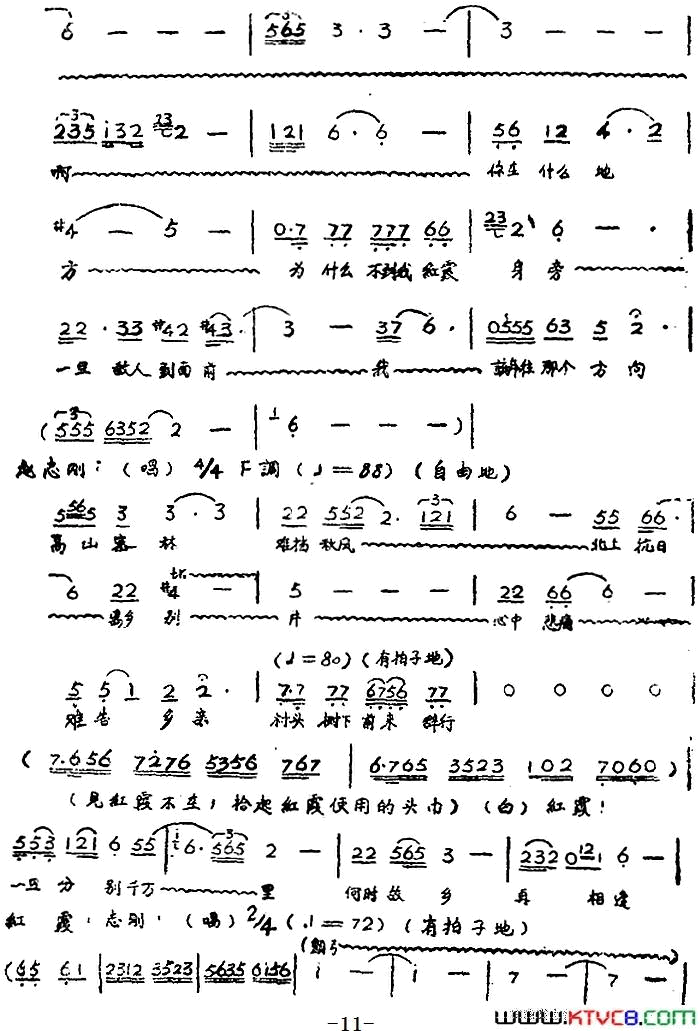 6 — — — | 565 3 · 3 — | 3 — — — |
235 i32 2 — | 121 6 · 6 — | 56 12 4 · 2 |
啊 你在 什么 地
#4 — 5 — | 0·7 77 777 66 | 2 6 — · |
方 为 什么 不到我 紅霞 身 旁
22 · 33 #42 #43 · | 3 — 37 6 · | 0555 63 5 2 · |
一旦 敌人 到面 前 我 那个 方 向
( 555 6352 2 — | 6 — — — ) |
赵志刚：（唱）4/4 F調（♩=88）（自由地）
5565 3 3 · 3 | 22 552 2· 121 | 6 — 55 66 · |
高 山 密 林 难挡 秋风 北上 抗日
6 22 #4 — | 5 — — — | 22 66 6 — |
离乡 别 井 心中 悲痛
（♩=80）（有拍子地）
5 5 1 2 2 · | 7·7 77 6756 77 | 0 0 0 0 |
难 告 乡 亲 村头 树下 前来 辞行
( 7·656 7276 5356 767 | 6·765 3523 102 7060 )
（見紅霞不在，拾起紅霞使用的头巾）（白）紅霞！
553 121 6 55 | 6· 565 2 — | 22 565 3 — | 232 0121 6 — |
一旦 分 别千万 里 何时 故 乡 再 相逢
紅 霞，志刚：（唱）2/4（♩=72）（有拍子地）
（顫弓
(65 61 | 2312 3523 | 5635 6156 | i — | i — | 7 — | 7 — |
-11-
www.KTVC8.com